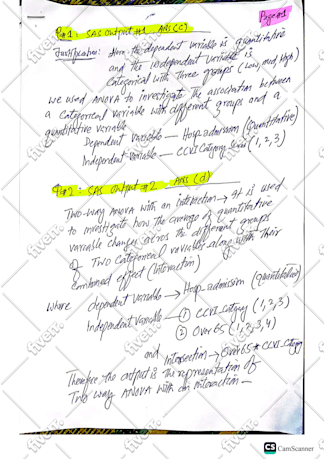 Page #1
Q#1: SAS Output #1 ANS (C)
Justification: Here the dependent variable is quantitative
and the independent variable is
categorical with three groups (Low, med, High)
we used ANOVA to investigate the association between
a categorical variable with different groups and a
quantitative variable
Dependent Variable — Hosp admission (quantitative)
Independent Variable — CCVI Category (1, 2, 3)
Q#2: SAS Output #2 — ANS (d)
Two-way ANOVA with an interaction → It is used
to investigate how the average of quantitative
variable changes across the different groups
of Two Categorical variables along with their
Combined effect (Interaction)
where dependent variable → Hosp admission (quantitative)
Independent Variable → ① CCVI Category (1, 2, 3)
② Over 65 (1, 2, 3, 4)
and Intersection → Over65 * CCVI Category
Therefore the output is the representation of
Two way ANOVA with an interaction —
fiverr
CS CamScanner